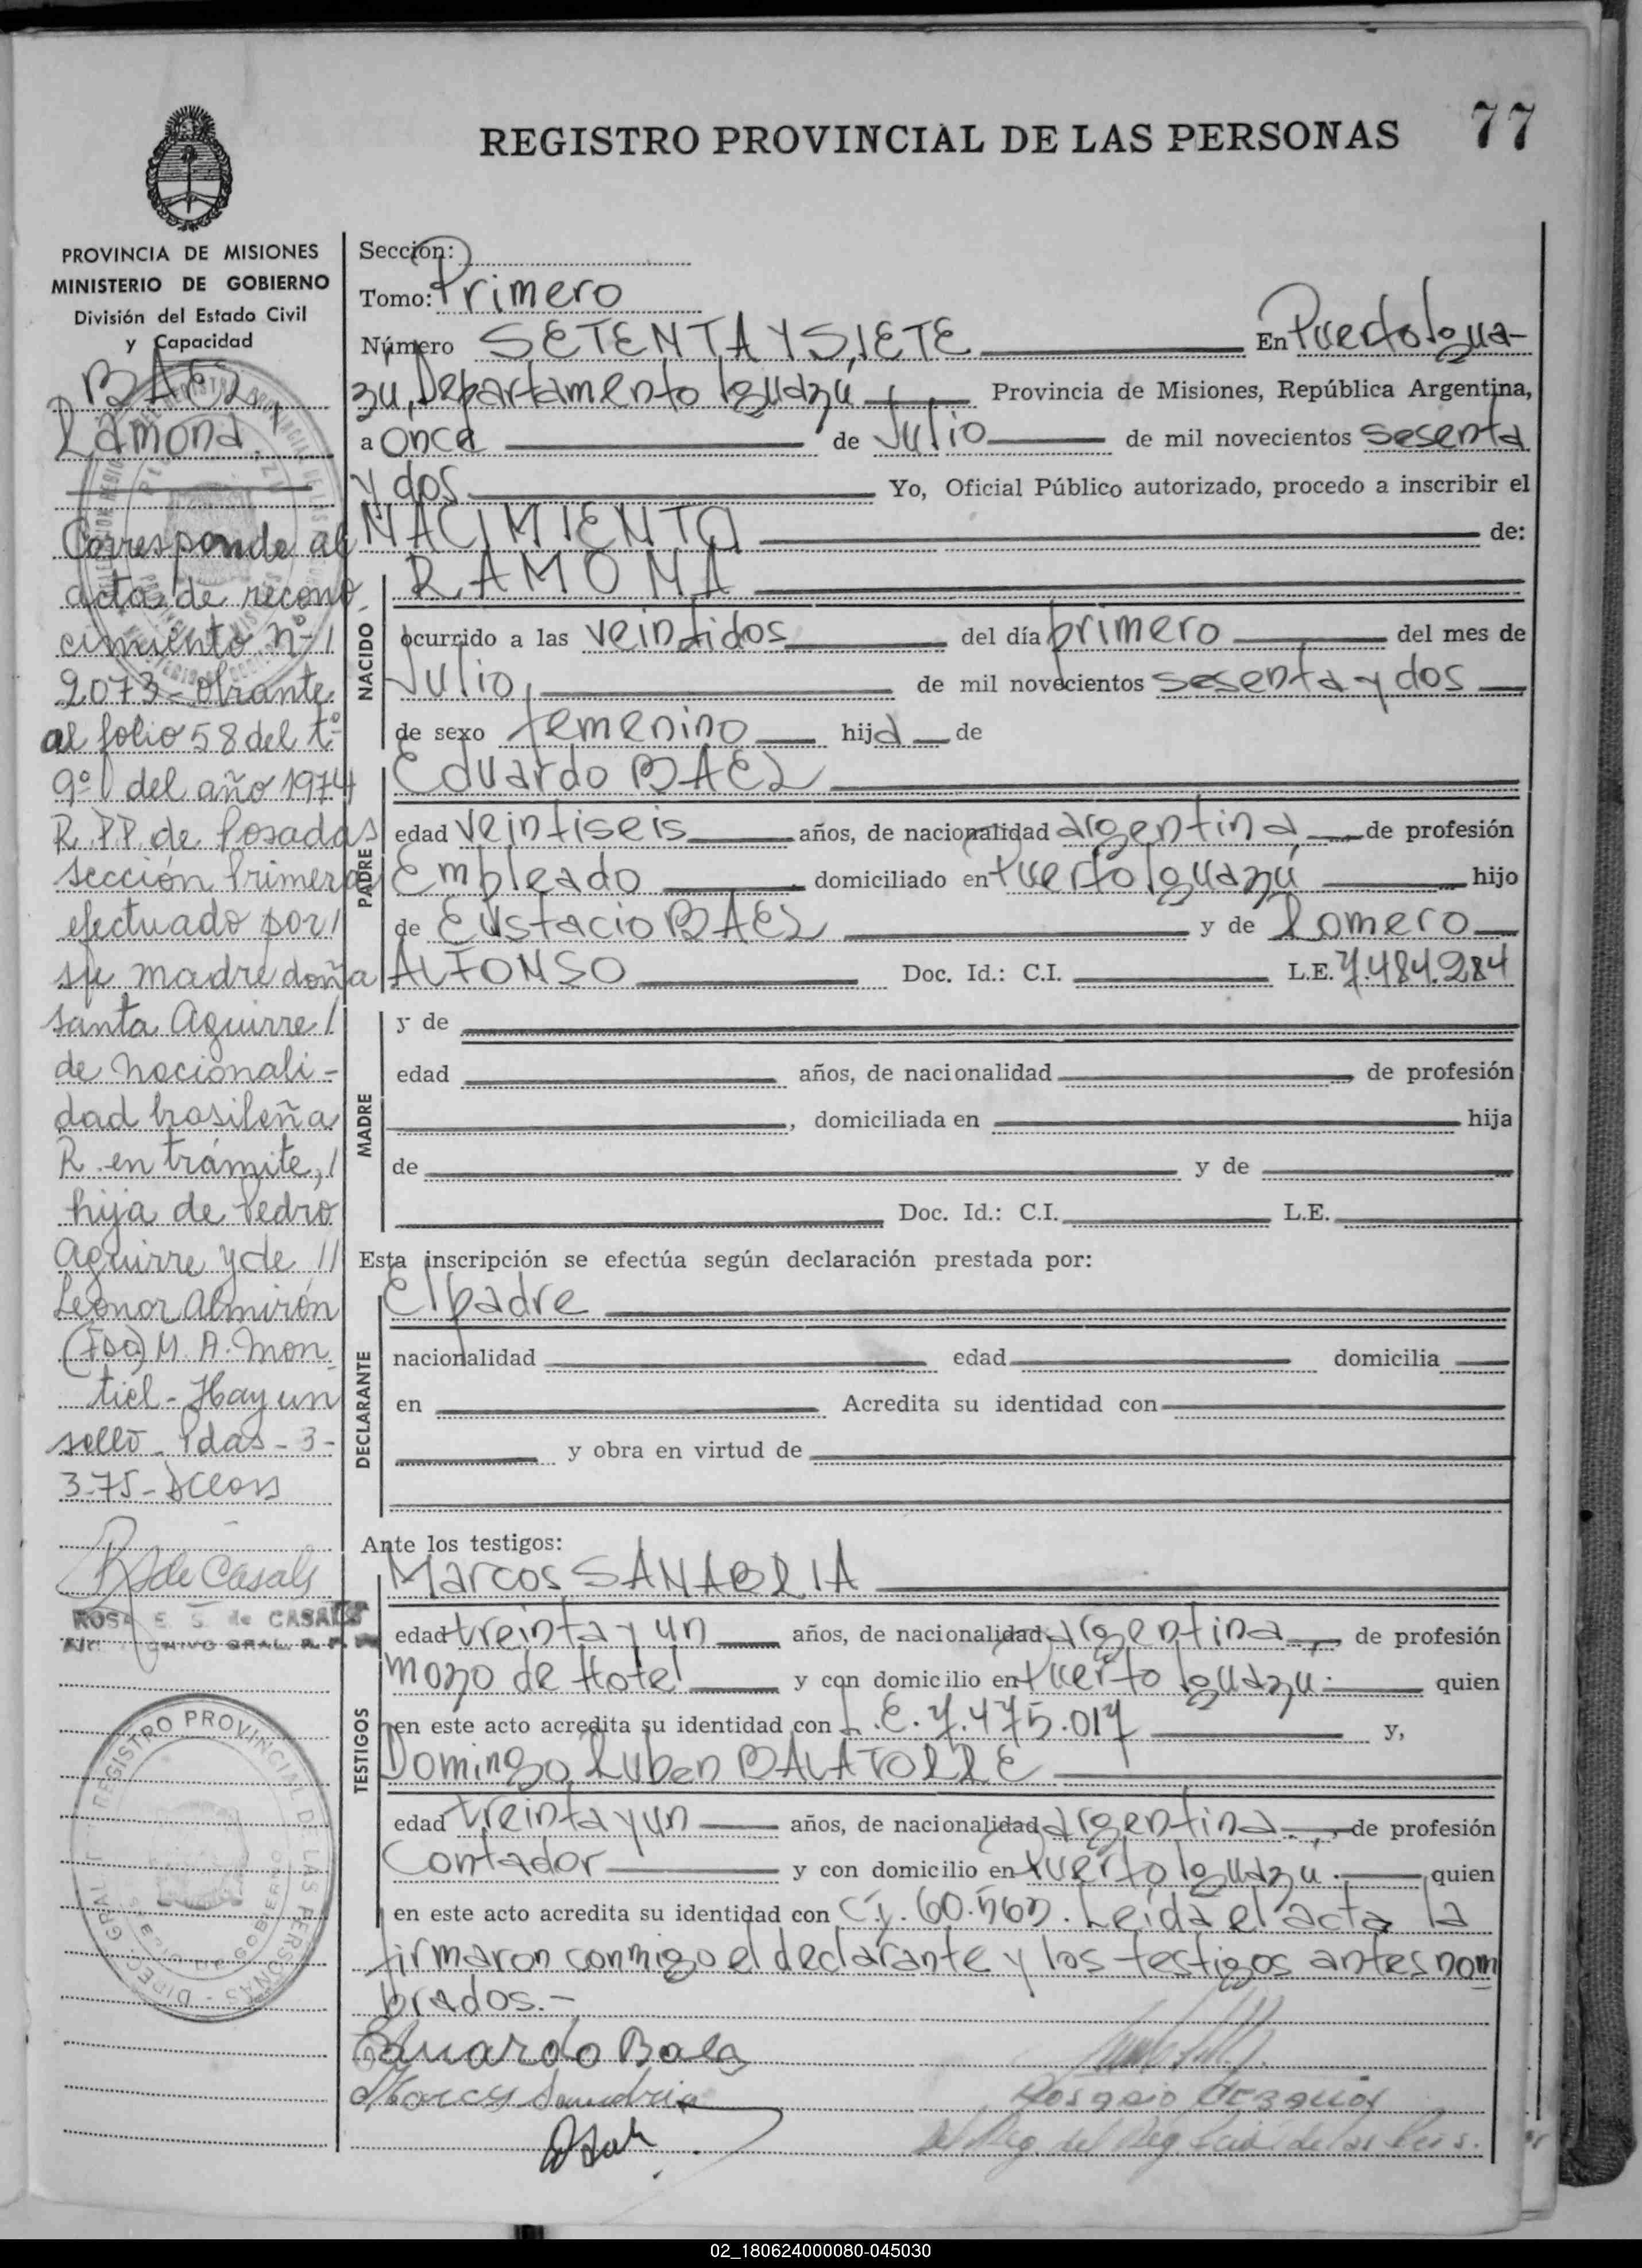 REGISTRO PROVINCIAL DE LAS PERSONAS 77
PROVINCIA DE MISIONES
MINISTERIO DE GOBIERNO
División del Estado Civil
y Capacidad
BAEZ
Ramona.
Corresponde al
acta de recono
cimiento nº /
2073 - obrante
al folio 58 del tº
9º del año 1974
R.P.P. de Posadas
sección Primera
efectuado por /
su madre doña
Santa Aguirre /
de nacionali-
dad brasileña
R. en trámite, /
hija de Pedro
Aguirre y de //
Leonor Almirón
(Fdo) M. A. Mon
tiel - Hay un
sello - Pdas - 3 -
3-75 -
R S de Casals
ROSA E. S. de CASALS
REGISTRO PROVINCIAL DE LAS PERSONAS
Sección:
Tomo: Primero
Número SETENTA Y SIETE En Puerto Igua-
zú, Departamento Iguazú Provincia de Misiones, República Argentina,
a once de Julio de mil novecientos sesenta
y dos Yo, Oficial Público autorizado, procedo a inscribir el
NACIMIENTO de:
RAMONA
NACIDO
ocurrido a las veintidos del día primero del mes de
Julio, de mil novecientos sesenta y dos
de sexo femenino hija de
Eduardo BAEZ
PADRE
edad veintiseis años, de nacionalidad argentina de profesión
Empleado domiciliado en Puerto Iguazú hijo
de Eustacio BAEZ y de Romero
ALFONSO Doc. Id.: C.I. L.E. 7.484.284
MADRE
y de
edad años, de nacionalidad de profesión
, domiciliada en hija
de y de
Doc. Id.: C.I. L.E.
Esta inscripción se efectúa según declaración prestada por:
El padre
DECLARANTE
nacionalidad edad domicilia
en Acredita su identidad con
y obra en virtud de
Ante los testigos:
Marcos SANABRIA
TESTIGOS
edad treinta y un años, de nacionalidad argentina, de profesión
mozo de Hotel y con domicilio en Puerto Iguazu. quien
en este acto acredita su identidad con L.E. 7.475.017 y,
Domingo Ruben BALATORRE
edad treinta y un años, de nacionalidad argentina, de profesión
Contador y con domicilio en Puerto Iguazu. quien
en este acto acredita su identidad con C.I. 60.563. Leída el acta la
firmaron conmigo el declarante y los testigos antes nom
brados.-
Eduardo Baez
Marcos Sanabria
02_180624000080-045030